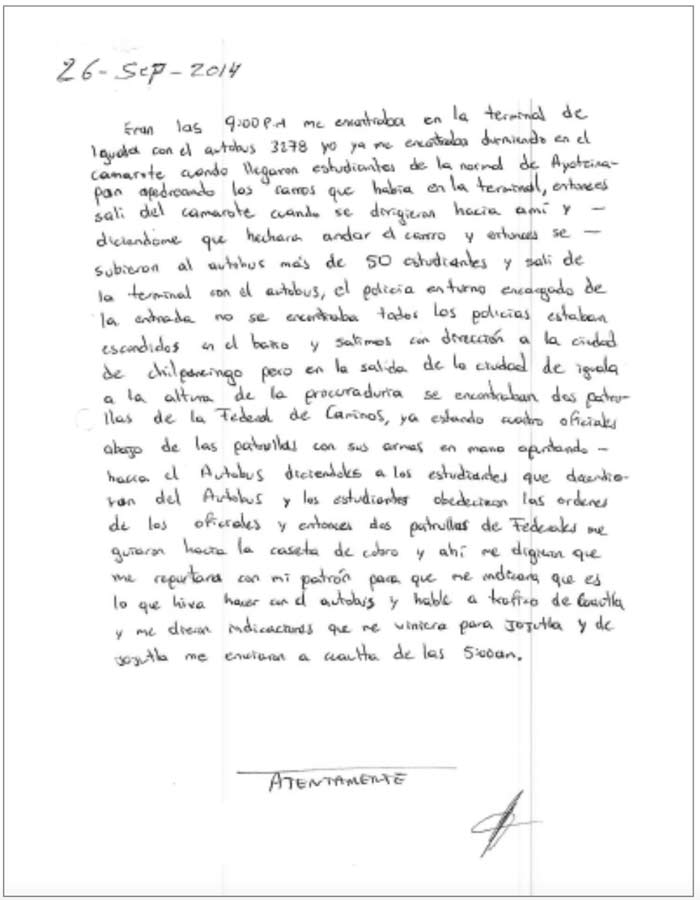 26-SEP-2014
Eran las 9:00 P.M me encontraba en la terminal de
Iguala con el autobus 3278 yo ya me encontraba durmiendo en el
camarote cuando llegaron estudiantes de la normal de Ayotzina-
pan apedreando los carros que habia en la terminal, entonces
sali del camarote cuando se dirigieron hacia ami y —
diciendome que hechara andar el carro y entonces se —
subieron al autobus más de 50 estudiantes y sali de
la terminal con el autobus, el policia en turno encargado de
la entrada no se encontraba todos los policias estaban
escondidos en el baño y salimos con dirección a la ciudad
de chilpancingo pero en la salida de la ciudad de iguala
a la altura de la procuraduria se encontraban dos patru-
llas de la Federal de Caminos, ya estando cuatro oficiales
abajo de las patrullas con sus armas en mano apuntando —
hacia el Autobus diciendoles a los estudiantes que decendie-
ran del Autobus y los estudiantes obedecieron las ordenes
de los oficiales y entonces dos patrullas de Federales me
guiaron hacia la caseta de cobro y ahí me digieron que
me reportara con mi patrón para que me indicara que es
lo que hiva hacer con el autobus y hable a trafico de Cuautla
y me dieron indicaciones que me viniera para jojutla y de
jojutla me enviaron a cuautla de las 5:00am.
ATENTAMENTE